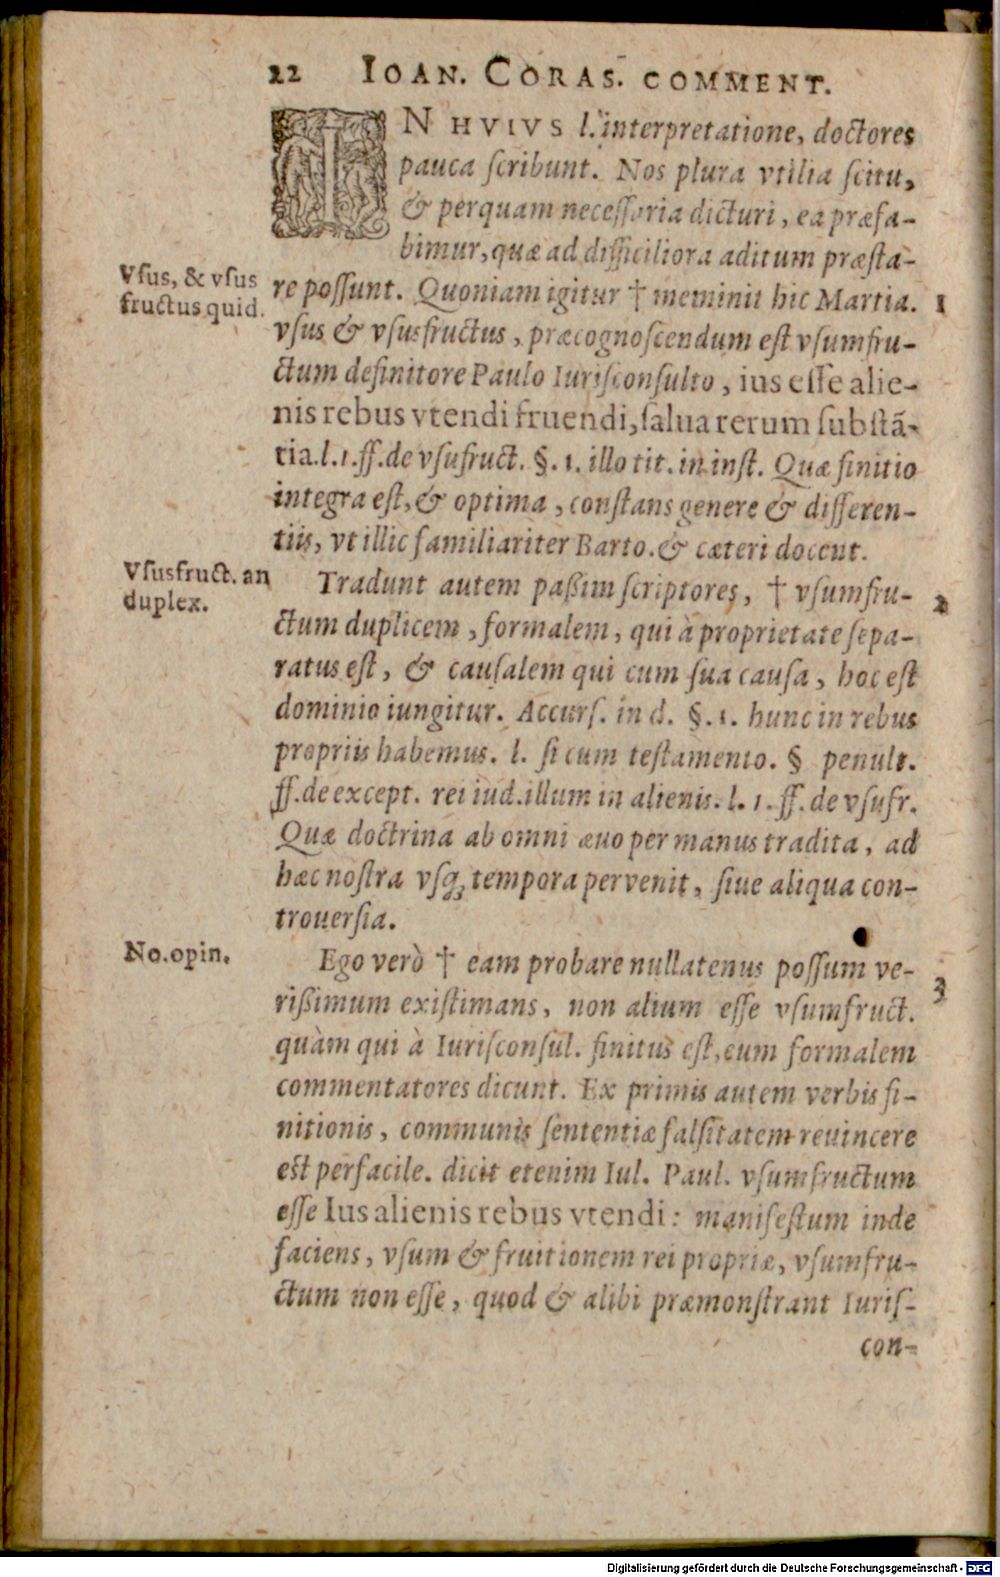 22 IOAN. CORAS. COMMENT.
IN HVIVS l. interpretatione, doctores
pauca ſcribunt. Nos plura vtilia ſcitu,
& perquam neceſſaria dicturi, ea præfa-
bimur, quæ ad difficiliora aditum præſta-
Vſus, & vſus
fructus quid.
re poſſunt. Quoniam igitur † meminit hic Martia. 1
vſus & vſusfructus, præcognoſcendum eſt vſumfru-
ctum definitore Paulo Iuriſconſulto, ius eſſe alie-
nis rebus vtendi fruendi, ſalua rerum ſubſtã-
tia. l. 1. ff. de vſufruct. §. 1. illo tit. in inſt. Quæ finitio
integra eſt, & optima, conſtans genere & differen-
tiis, vt illic familiariter Barto. & cæteri docent.
Vſusfruct. an
duplex.
Tradunt autem paßim ſcriptores, † vſumfru- 2
ctum duplicem, formalem, qui à proprietate ſepa-
ratus eſt, & cauſalem qui cum ſua cauſa, hoc eſt
dominio iungitur. Accurſ. in d. §. 1. hunc in rebus
propriis habemus. l. ſi cum teſtamento. § penult.
ff. de except. rei iud. illum in alienis. l. 1. ff. de vſufr.
Quæ doctrina ab omni æuo per manus tradita, ad
hæc noſtra vſq; tempora pervenit, ſiue aliqua con-
trouerſia.
No. opin.
Ego verò † eam probare nullatenus poſſum ve- 3
rißimum exiſtimans, non alium eſſe vſumfruct.
quàm qui à Iuriſconſul. finitus eſt, eum formalem
commentatores dicunt. Ex primis autem verbis fi-
nitionis, communis ſententiæ falſitatem reuincere
eſt perfacile. dicit etenim Iul. Paul. vſumfructum
eſſe Ius alienis rebus vtendi: manifeſtum inde
faciens, vſum & fruitionem rei propriæ, vſumfru-
ctum non eſſe, quod & alibi præmonſtrant Iuriſ-
con-
Digitalisierung gefördert durch die Deutsche Forschungsgemeinschaft - DFG